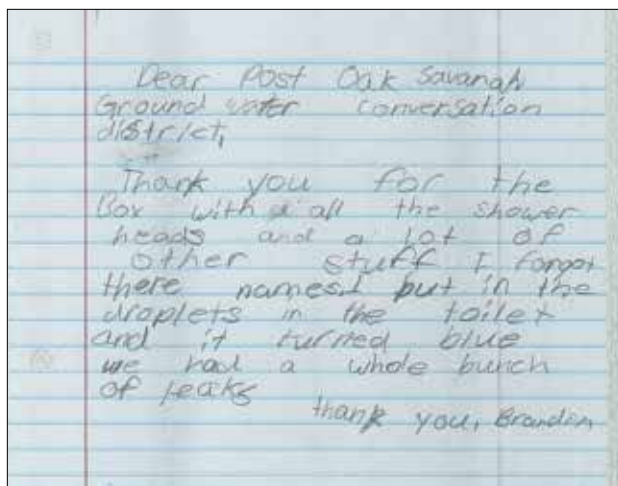 Dear Post Oak Savanah
Ground water conversation
district,
Thank you for the
Box with a all the shower
heads and a lot of
other stuff I forgot
there names I but in the
droplets in the toilet
and it turned blue
we had a whole bunch
of leaks
thank you, Brandon